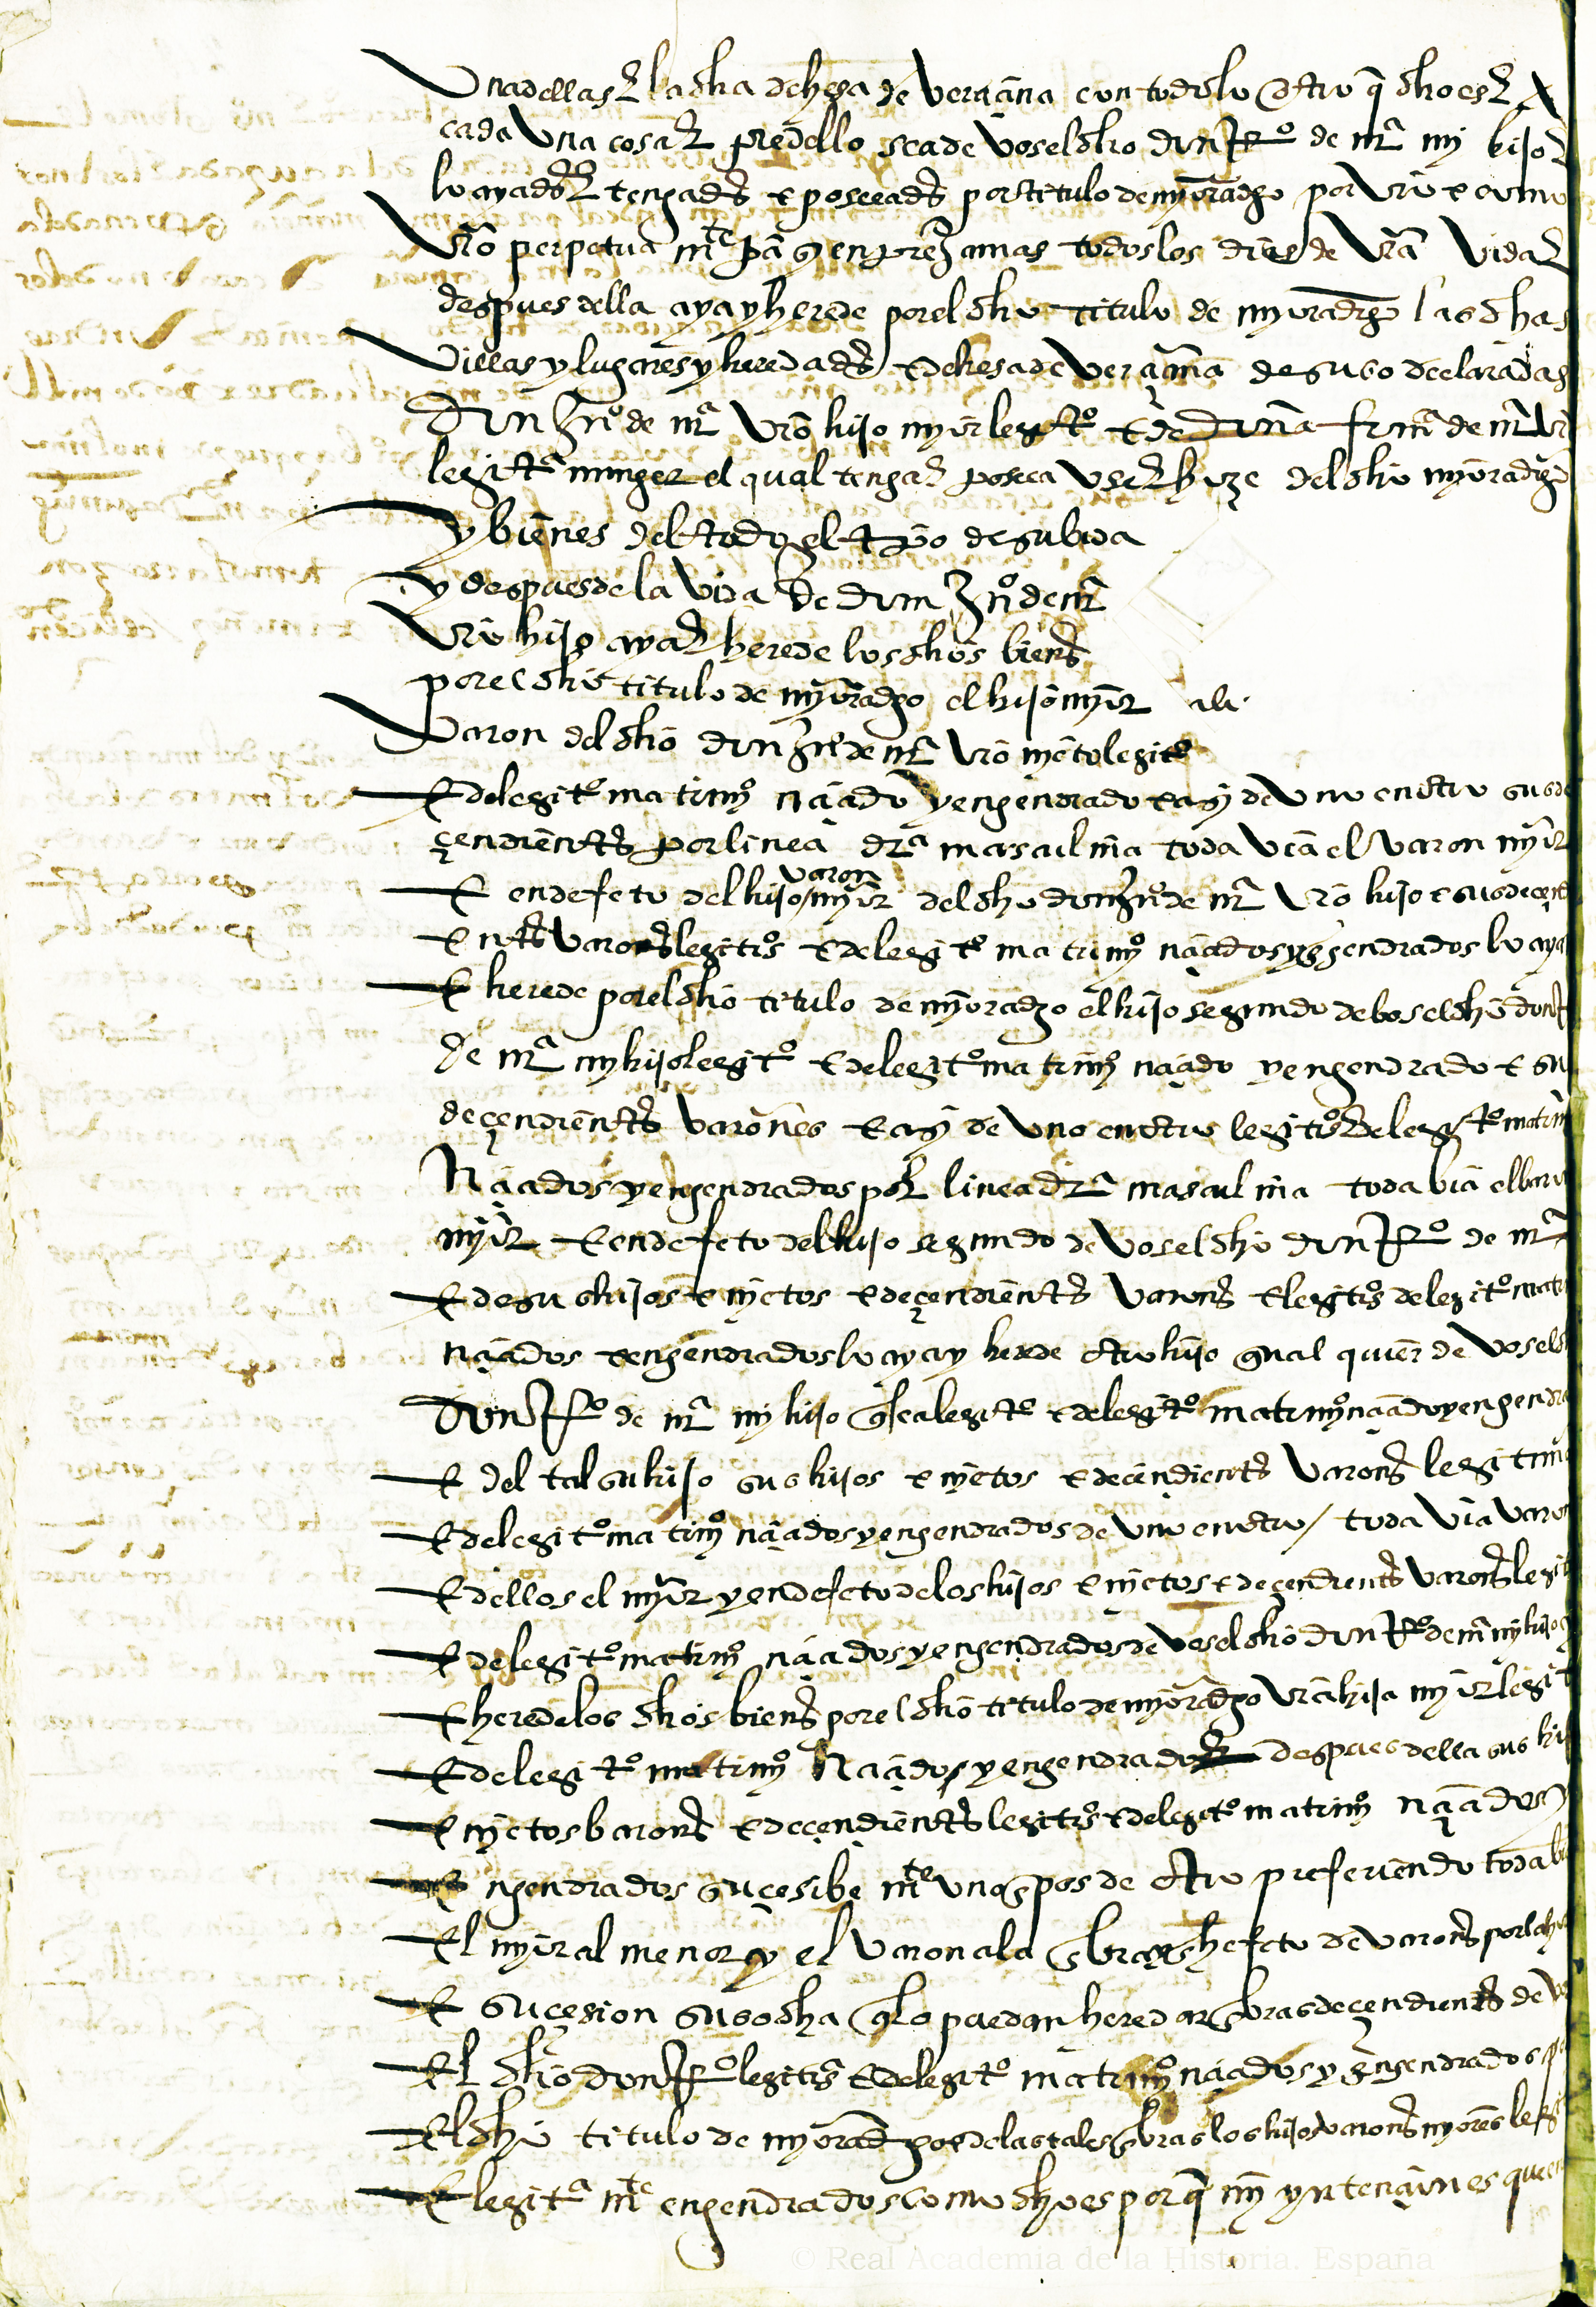 Vna dellas E la dha dehesa de verçiana con todo lo otro q̃ dho es E
cada vna cosa E p̱te dello sea de vos el dho don Po de mra mi hijo E
lo ayades E tengades e poseeades por titulo de myoradgo por vro e como
vro perpetua mte pa en todos los dias de vra vida E
despues della aya y herede por el dho titulo de myoradgo las dhas
villas y lugares y heredades e dehesa de verçiana de suso declaradas
don de mra vro hijo myor legito e de doña de mra vra
legita muger el qual tenga E posea vse E goze del dho myoradgo
y bienes del todo el tpo de su bida
y despues de la vida de don de mra
vro hijo aya E herede los dhos bienes
por el dho titulo de myoradgo el hijo myor
varon del dho don de mra vro nyeto legito
E de legito matrimo naçido y engendrado e asy de vno en otro sus de
çendientes por linea dra masculina toda via el varon myor
E en defeto del hijo varon myor del dho don de mra vro hijo e sus deçend
Entes varones legitos e de legito matrimo naçidos y engendrados lo aya
E herede por el dho titulo de myoradgo el hijo segundo de bos el dho don
de mra my hijo legito e de legito matrimo naçido y engendrado e su
deçendientes varones e asy de vno en otro legitos E de legito matrim
Naçidos y engendrados por linea dra masculina toda bia el baro
myor e en defeto del hijo segundo de vos el dho don Po de mra
E de sus hijos e nyetos e deçendientes varones e legitos de legito matri
naçidos e engendrados lo aya y herede otro hijo qual quier de vos el d
don Po de mra mi hijo q̃ sea legito e de legito matrimo naçido y engendra
E del tal su hijo sus hijos e nyetos e deçendientes varones legitim
E de legito matrimo naçidos y engendrados de vno en otro / toda via varo
E dellos el myor y en defeto de los hijos e nyetos e deçendientes varones legit
E de legito matrimo naçidos y engendrados de vos el dho don Po de mra my hijo
E herede los dhos bienes por el dho titulo de myoradgo vra hija myor legit
E de legito matrimo Naçidos y engendrados despues della sus hij
E nyetos barones e deçendientes legitos e de legito matrimo naçidos y
E ngendrados suçesibe mte vno en pos de otro prefiriendo toda bi
El myor al menor y el varon a la henbra en defeto de varones por la
E suçesion susodha q̃ lo puedan heredar henbras deçendientes de v
El dho don Po legitos e de legito matrimo naçidos y engendrados p
El dho titulo de myoradgo e de las tales henbras los hijos varones myores legi
E legita mte engendrados como dho es por q̃ my yntençion es que